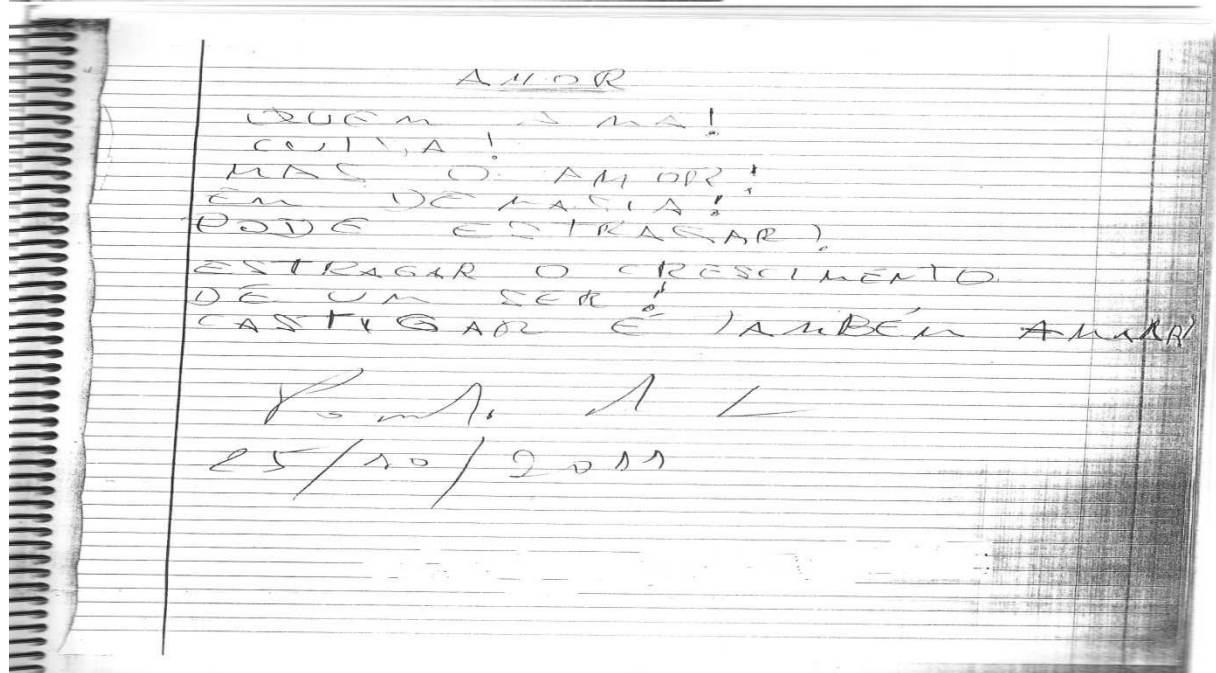 AMOR
QUEM AMA!
CUIDA!
MAS O AMOR!
EM DEMASIA!
PODE ESTRAGAR!
ESTRAGAR O CRESCIMENTO
DE UM SER!
CASTIGAR É TAMBÉM AMAR
25/10/2011